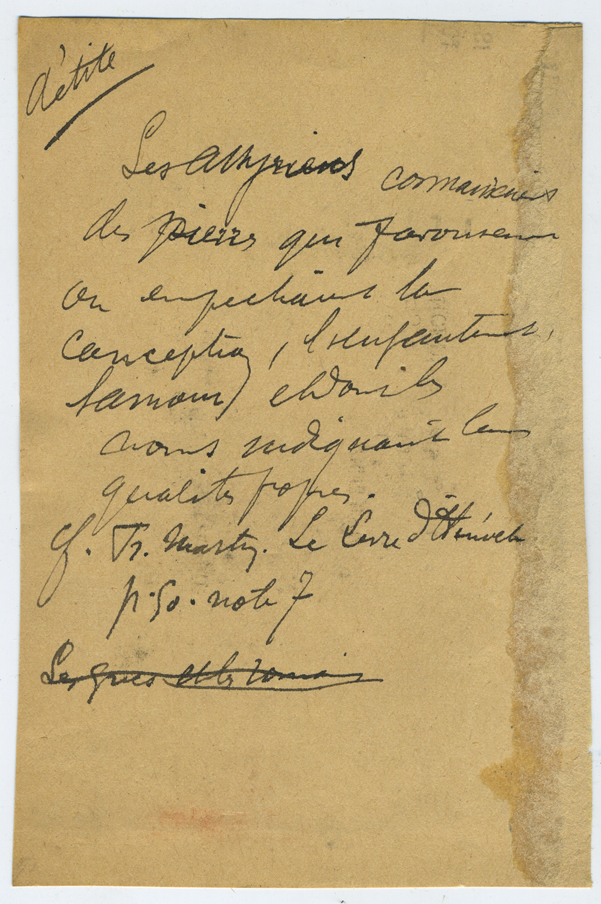 aétite
Les Assyriens connaissaient
des pierres qui favorisaient
ou empechaient la
conception, l'enfantement,
l'amour, et dont les
noms indiquaient leurs
qualités propres.
cf. Fr. Martin. Le Livre d'Hénoch
p. 50. note 7
Les grecs et les romains